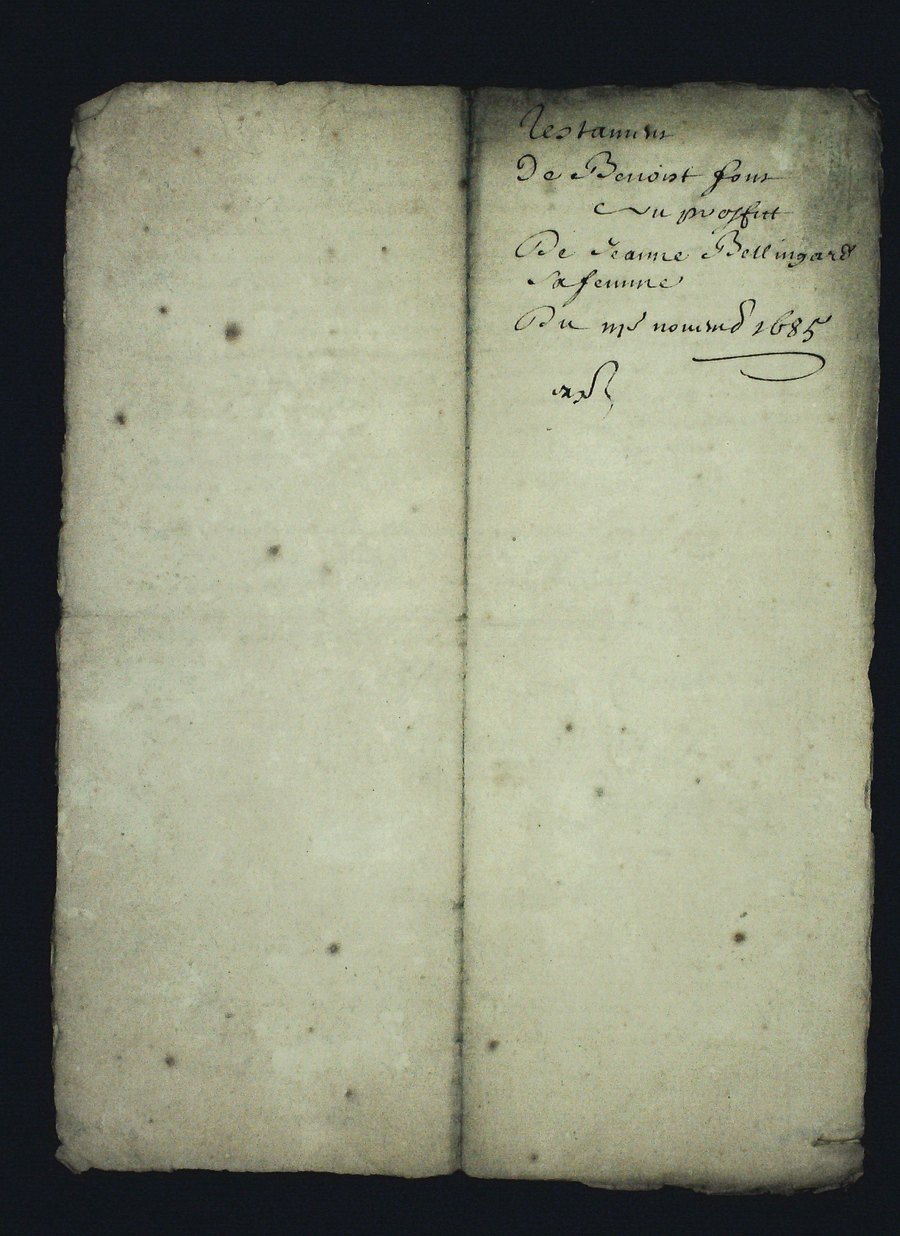 Testament
De Benoist font
Au proffit
De Jeanne Bellingard
Sa femme
Du novemb 1685